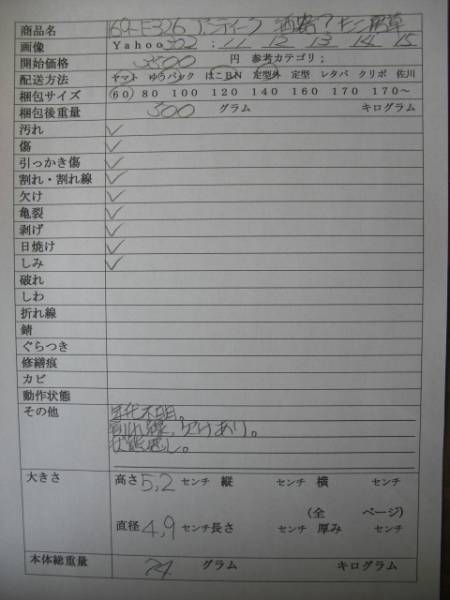 商品名 69-E326 アンティーク
画像 Yahoo 322 : 11 12 13 14 15
開始価格 3500 円 参考カテゴリ;
配送方法 ヤマト ゆうパック はこBN 定型外 定型 レタパ クリポ 佐川
梱包サイズ 60 80 100 120 140 160 170 170~
梱包後重量 300 グラム キログラム
汚れ ✓
傷 ✓
引っかき傷 ✓
割れ・割れ線 ✓
欠け ✓
亀裂 ✓
剥げ ✓
日焼け ✓
しみ ✓
破れ
しわ
折れ線
錆
ぐらつき
修繕痕
カビ
動作状態
その他 年代不明。
割れ線,欠けあり。
状態悪し。
大きさ 高さ 5,2 センチ 縦 センチ 横 センチ
(全 ページ)
直径 4,9 センチ 長さ センチ 厚み センチ
本体総重量 24 グラム キログラム